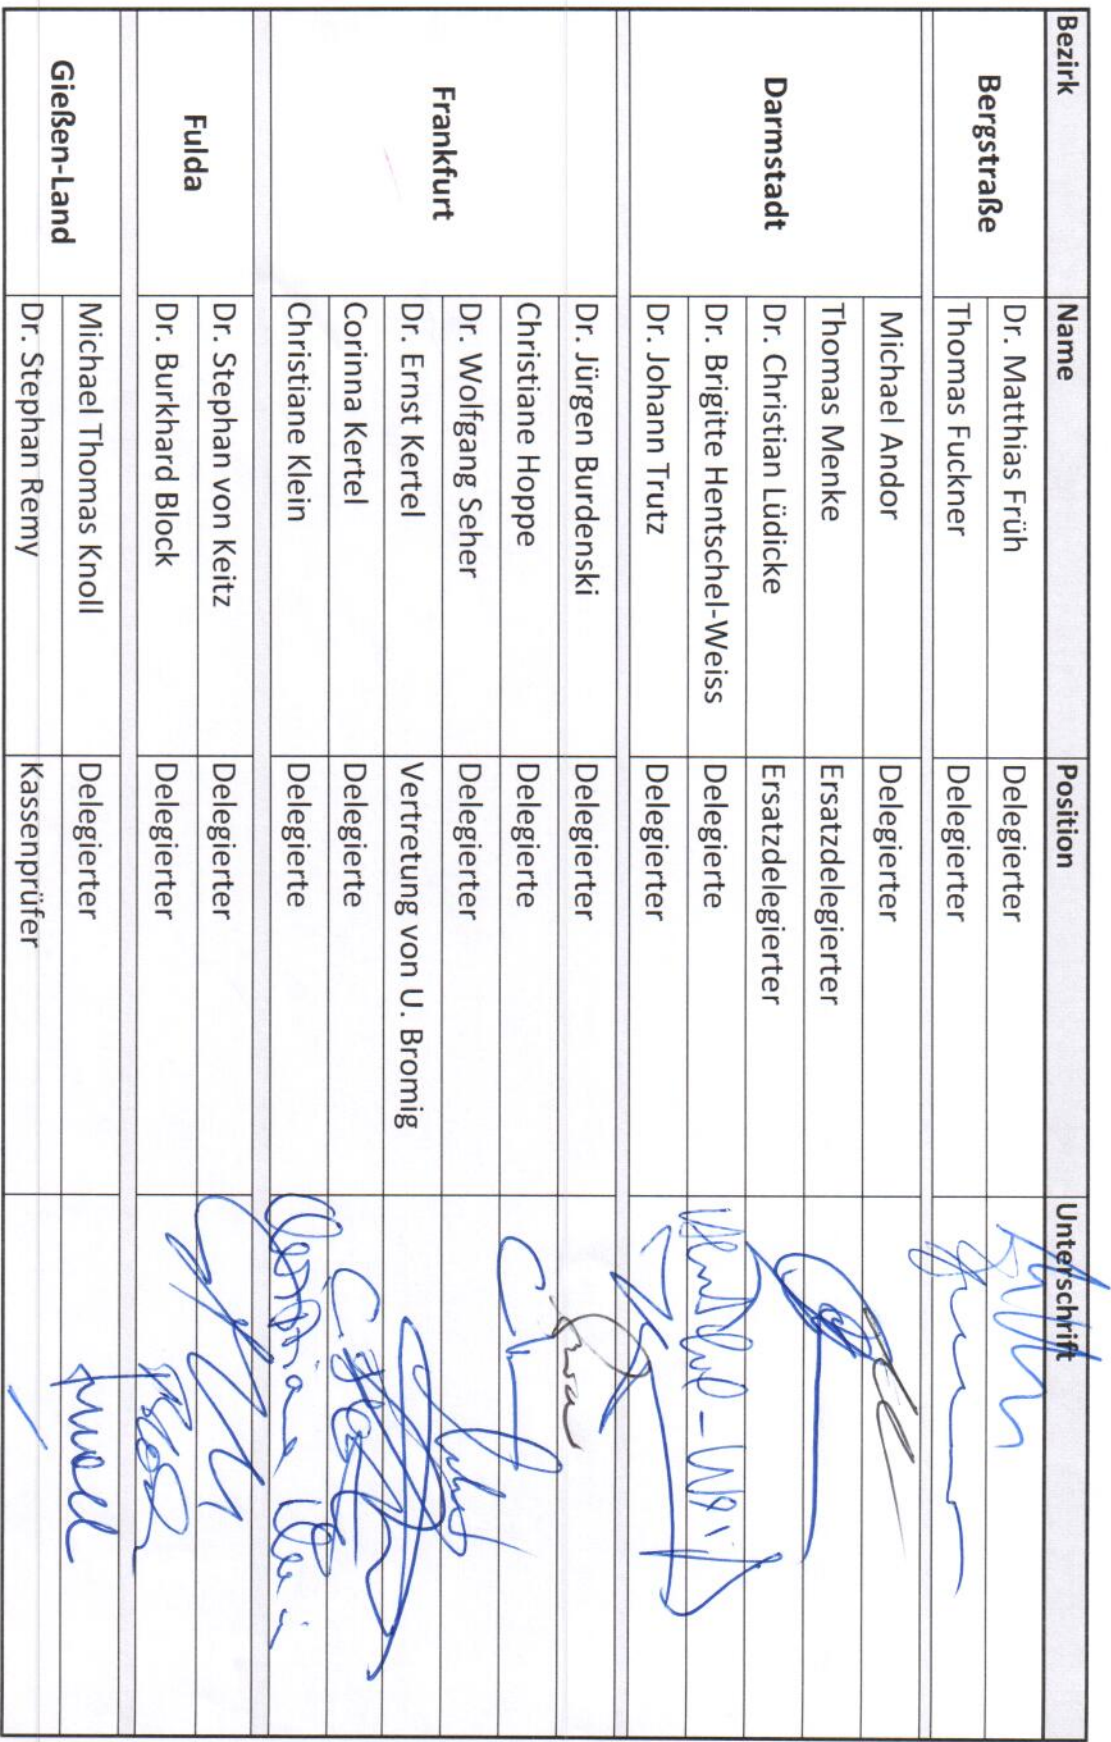 Bezirk Name Position Unterschrift
Bergstraße
Dr. Matthias Früh Delegierter
Thomas Fuckner Delegierter
Darmstadt
Michael Andor Delegierter
Thomas Menke Ersatzdelegierter
Dr. Christian Lüdicke Ersatzdelegierter
Dr. Brigitte Hentschel-Weiss Delegierte
Dr. Johann Trutz Delegierter
Frankfurt
Dr. Jürgen Burdenski Delegierter
Christiane Hoppe Delegierte
Dr. Wolfgang Seher Delegierter
Dr. Ernst Kertel Vertretung von U. Bromig
Corinna Kertel Delegierte
Christiane Klein Delegierte Christiane Klein
Fulda
Dr. Stephan von Keitz Delegierter
Dr. Burkhard Block Delegierter Block
Gießen-Land
Michael Thomas Knoll Delegierter Knoll
Dr. Stephan Remy Kassenprüfer